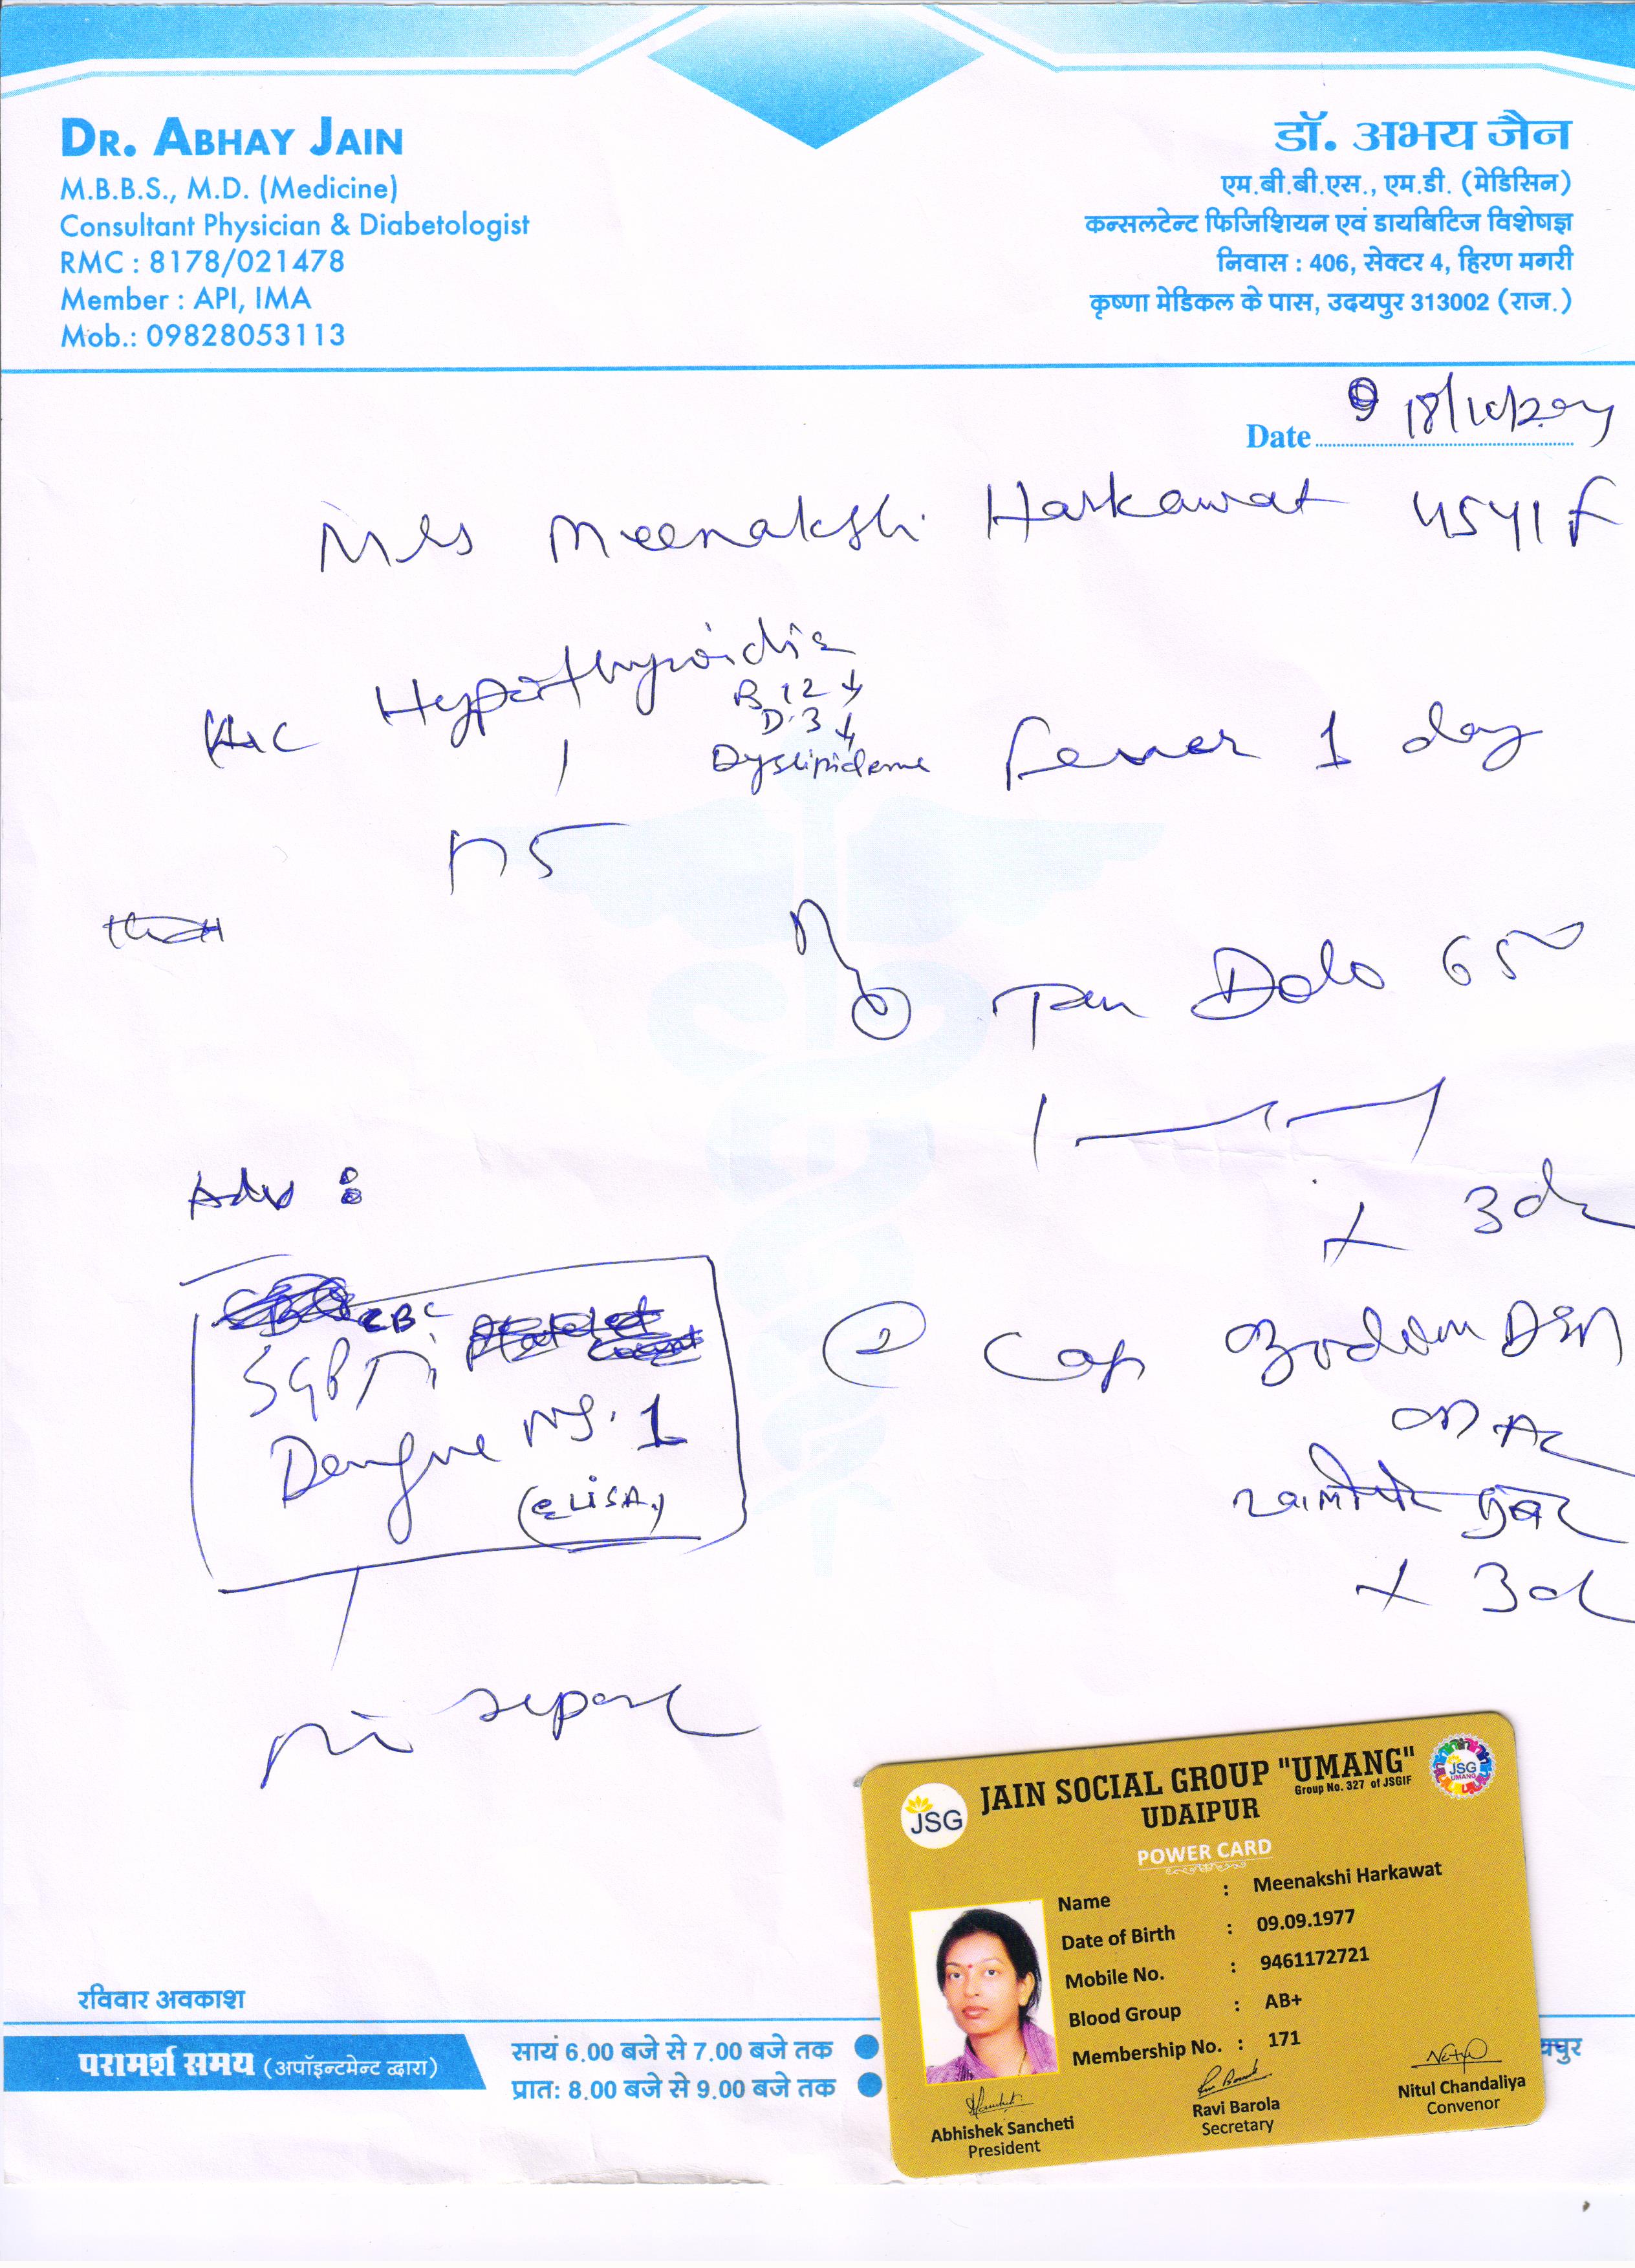 DR. ABHAY JAIN
M.B.B.S., M.D. (Medicine)
Consultant Physician & Diabetologist
RMC : 8178/021478
Member : API, IMA
Mob.: 09828053113
डॉ. अभय जैन
एम.बी.बी.एस., एम.डी. (मेडिसिन)
कन्सलटेन्ट फिजिशियन एवं डायबिटिज विशेषज्ञ
निवास : 406, सेक्टर 4, हिरण मगरी
कृष्णा मेडिकल के पास, उदयपुर 313002 (राज.)
Date
Mrs Meenakshi Harkawat 45Y/F
B12 ↓
D.3 ↓
Fever 1 day
Dolo 650
Adv :
x 3d
CBC
SGPT
Dengue NS.1
(ELISA)
② Cap DSR
OD AC
खाली पेट सुबह
x 3d
JAIN SOCIAL GROUP "UMANG"
Group No. 327 of JSGIF
UDAIPUR
JSG
JSG
UMANG
POWER CARD
Name : Meenakshi Harkawat
Date of Birth : 09.09.1977
Mobile No. : 9461172721
Blood Group : AB+
Membership No. : 171
Abhishek Sancheti
President
Ravi Barola
Secretary
Nitul Chandaliya
Convenor
रविवार अवकाश
परामर्श समय (अपॉइन्टमेन्ट द्वारा)
सायं 6.00 बजे से 7.00 बजे तक
प्रात: 8.00 बजे से 9.00 बजे तक